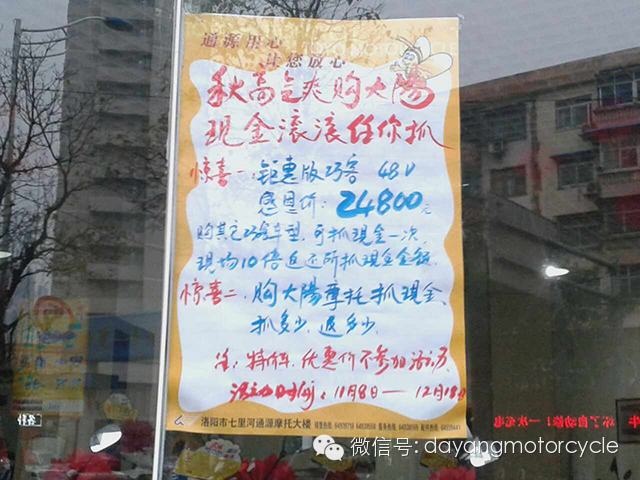 通源用心
让您放心
秋高气爽购大陽
现金滚滚任你抓
惊喜一:钜惠版巧客 48V
感恩价:24800元
购其它巧客车型,可抓现金一次
现场10倍返还所抓现金金额
惊喜二:购大陽摩托抓现金、
抓多少,退多少
注:特价车,优惠价不参加活动
活动时间:11月8日——12月18日
洛阳市七里河通源摩托大楼
微信号: dayangmotorcycle